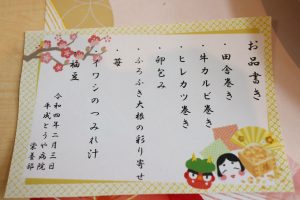 お品書き
・田舎巻き
・牛カルビ巻き
・ヒレカツ巻き
・卵包み
・ふろふき大根の彩り寄せ
・苺
・イワシのつみれ汁
・福豆
令和四年二月三日
平成とうや病院
栄養部